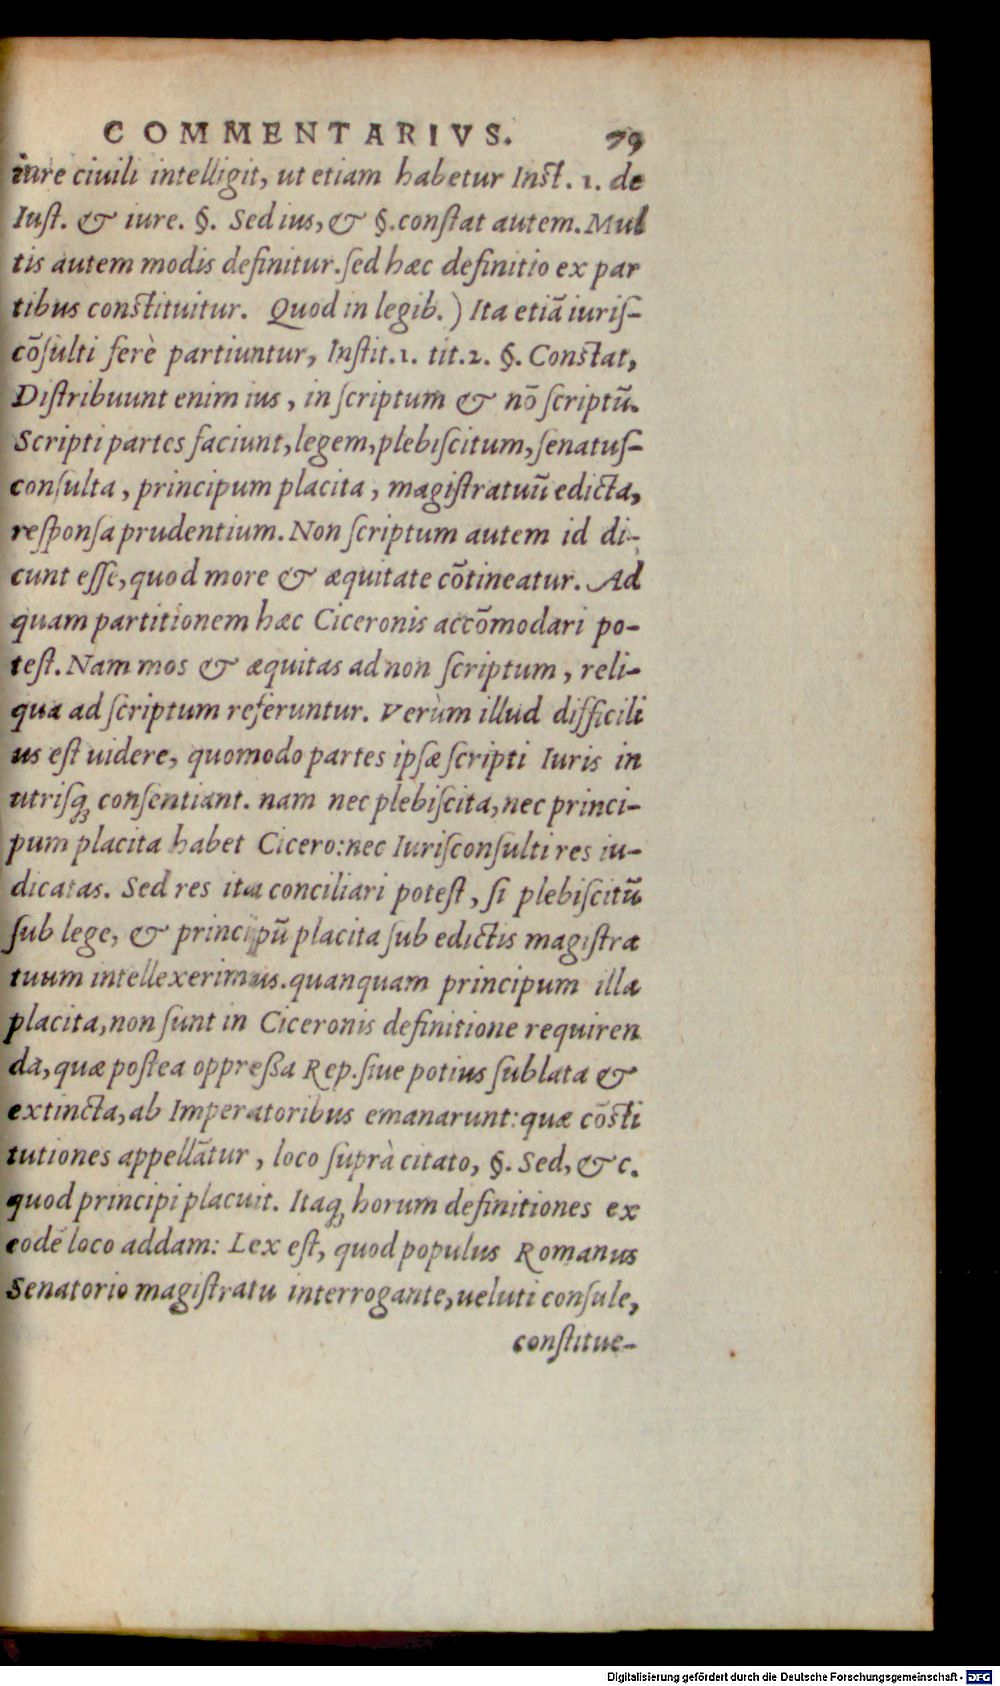 COMMENTARIVS. 79
iure ciuili intelligit, ut etiam habetur Inst. 1. de
Iust. & iure. §. Sed ius, & §. constat autem. Mul
tis autem modis definitur. sed hæc definitio ex par
tibus constituitur. Quod in legib.) Ita etiã iuris-
cõsulti ferè partiuntur, Instit. 1. tit. 2. §. Constat,
Distribuunt enim ius, in scriptum & nõ scriptũ.
Scripti partes faciunt, legem, plebiscitum, senatus-
consulta, principum placita, magistratuũ edicta,
responsa prudentium. Non scriptum autem id di-
cunt esse, quod more & æquitate cõtineatur. Ad
quam partitionem hæc Ciceronis accõmodari po-
test. Nam mos & æquitas ad non scriptum, reli-
qua ad scriptum referuntur. Verùm illud difficili
us est uidere, quomodo partes ipsæ scripti Iuris in
utrisq; consentiant. nam nec plebiscita, nec princi-
pum placita habet Cicero: nec Iurisconsulti res iu-
dicatas. Sed res ita conciliari potest, si plebiscitũ
sub lege, & principũ placita sub edictis magistra
tuum intellexerimus. quanquam principum illa
placita, non sunt in Ciceronis definitione requiren
da, quæ postea oppreßa Rep. siue potius sublata &
extincta, ab Imperatoribus emanarunt: quæ cõsti
tutiones appellãtur, loco suprà citato, §. Sed, &c.
quod principi placuit. Itaq; horum definitiones ex
eodẽ loco addam: Lex est, quod populus Romanus
Senatorio magistratu interrogante, ueluti consule,
constitue-
Digitalisierung gefördert durch die Deutsche Forschungsgemeinschaft - DFG